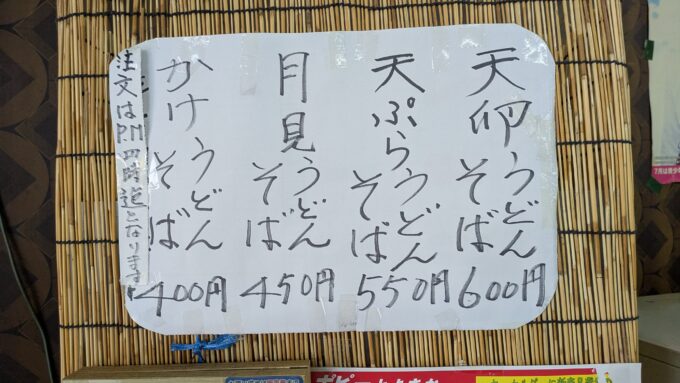 天卵うどん
そば
600円
天ぷらうどん
そば
550円
月見うどん
そば
450円
かけうどん
そば
400円
注文はPM四時迄となります